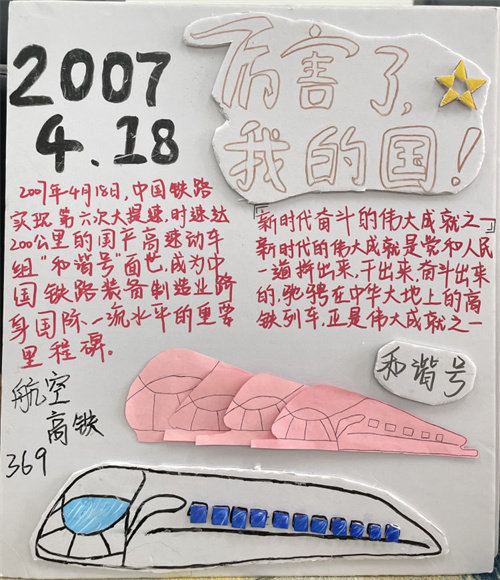 2007
4.18
厉害了,
我的国!
2007年4月18日,中国铁路
实现第六次大提速.时速达
200公里的国产高速动车
组“和谐号”面世,成为中
国铁路装备制造业跨
身国际一流水平的重要
里程碑。
新时代奋斗的伟大成就之一
新时代的伟大成就是党和人民
一道拼出来,干出来,奋斗出来
的,驰骋在中华大地上的高
铁列车,正是伟大成就之一
和谐号
航空
高铁
369